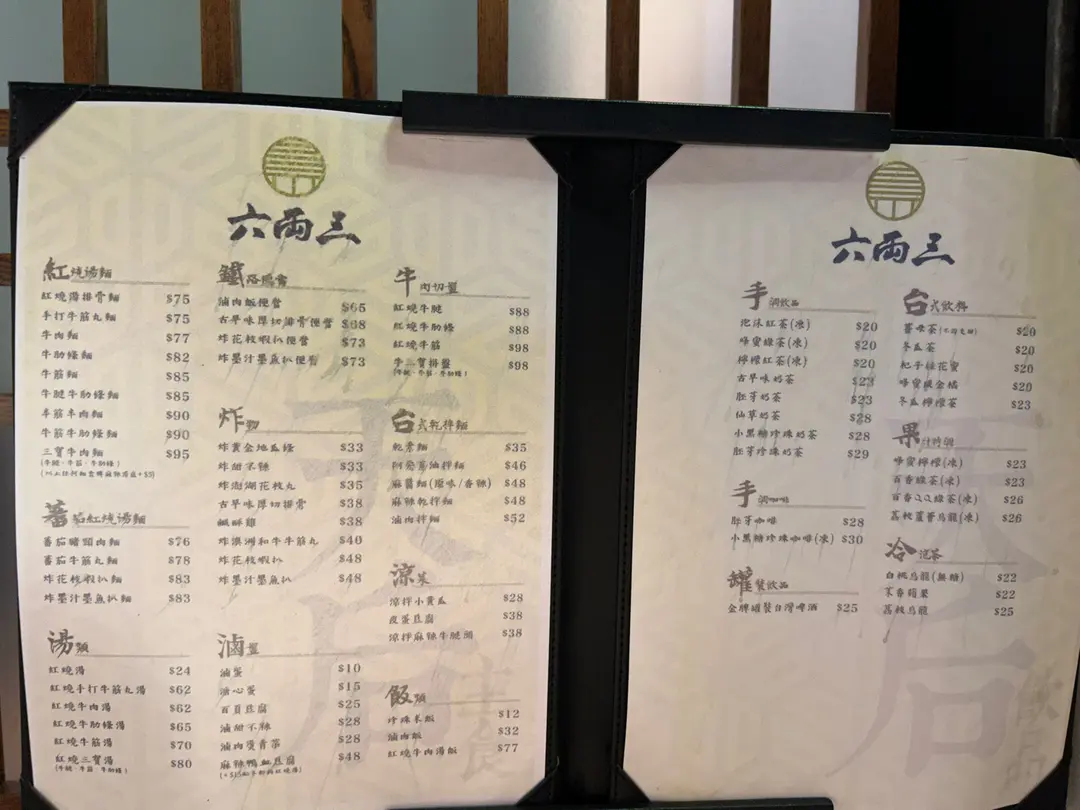 六両三
紅燒湯麵
紅燒湯排骨麵 $75
手打牛筋丸麵 $75
牛肉麵 $77
牛肋條麵 $82
牛筋麵 $85
牛腱牛肋條麵 $85
半筋半肉麵 $90
牛筋牛肋條麵 $90
三寶牛肉麵 $95
(牛腱、牛筋、牛肋條)
蕃茄紅燒湯麵
蕃茄豬頸肉麵 $76
蕃茄牛筋丸麵 $78
炸花枝蝦扒麵 $83
炸墨汁墨魚扒麵 $83
湯類
紅燒湯 $24
紅燒手打牛筋丸湯 $62
紅燒牛肉湯 $62
紅燒牛肋條湯 $65
紅燒牛筋湯 $70
紅燒三寶湯 $80
(牛腱、牛筋、牛肋條)
鐵路便當
滷肉飯便當 $65
古早味厚切排骨便當 $68
炸花枝蝦扒便當 $73
炸墨汁墨魚扒便當 $73
炸物
炸黃金地瓜條 $33
炸甜不辣 $33
炸澎湖花枝丸 $35
古早味厚切排骨 $38
鹹酥雞 $38
炸澳洲和牛牛筋丸 $40
炸花枝蝦扒 $48
炸墨汁墨魚扒 $48
滷豐
滷蛋 $10
溏心蛋 $15
百頁豆腐 $25
滷甜不辣 $28
滷肉燙青菜 $28
麻辣鴨血豆腐 $48
牛肉切盤
紅燒牛腱 $88
紅燒牛肋條 $88
紅燒牛筋 $98
牛三寶拼盤 $98
(牛腱、牛筋、牛肋條)
台式乾拌麵
乾素麵 $35
阿發蔥油拌麵 $46
麻醬麵(原味/香辣) $48
麻辣乾拌麵 $48
滷肉拌麵 $52
涼菜
涼拌小黃瓜 $28
皮蛋豆腐 $38
涼拌麻辣牛腱 $38
飯類
珍珠米飯 $12
滷肉飯 $32
紅燒牛肉湯飯 $77
六両三
手調飲品
泡沫紅茶(凍) $20
蜂蜜綠茶(凍) $20
檸檬紅茶(凍) $20
古早味奶茶 $23
胚芽奶茶 $23
仙草奶茶 $28
小黑糖珍珠奶茶 $28
胚芽珍珠奶茶 $29
手調咖啡
胚芽咖啡 $28
小黑糖珍珠咖啡(凍) $30
罐裝飲品
金牌罐裝台灣啤酒 $25
台式飲料
$20
冬瓜茶 $20
杞子桂花蜜 $20
蜂蜜金桔 $20
冬瓜檸檬茶 $23
果汁特調
蜂蜜檸檬(凍) $23
百香綠茶(凍) $23
百香QQ綠茶(凍) $26
荔枝蘆薈烏龍(凍) $26
冷泡茶
白桃烏龍(無糖) $22
$22
荔枝烏龍 $25